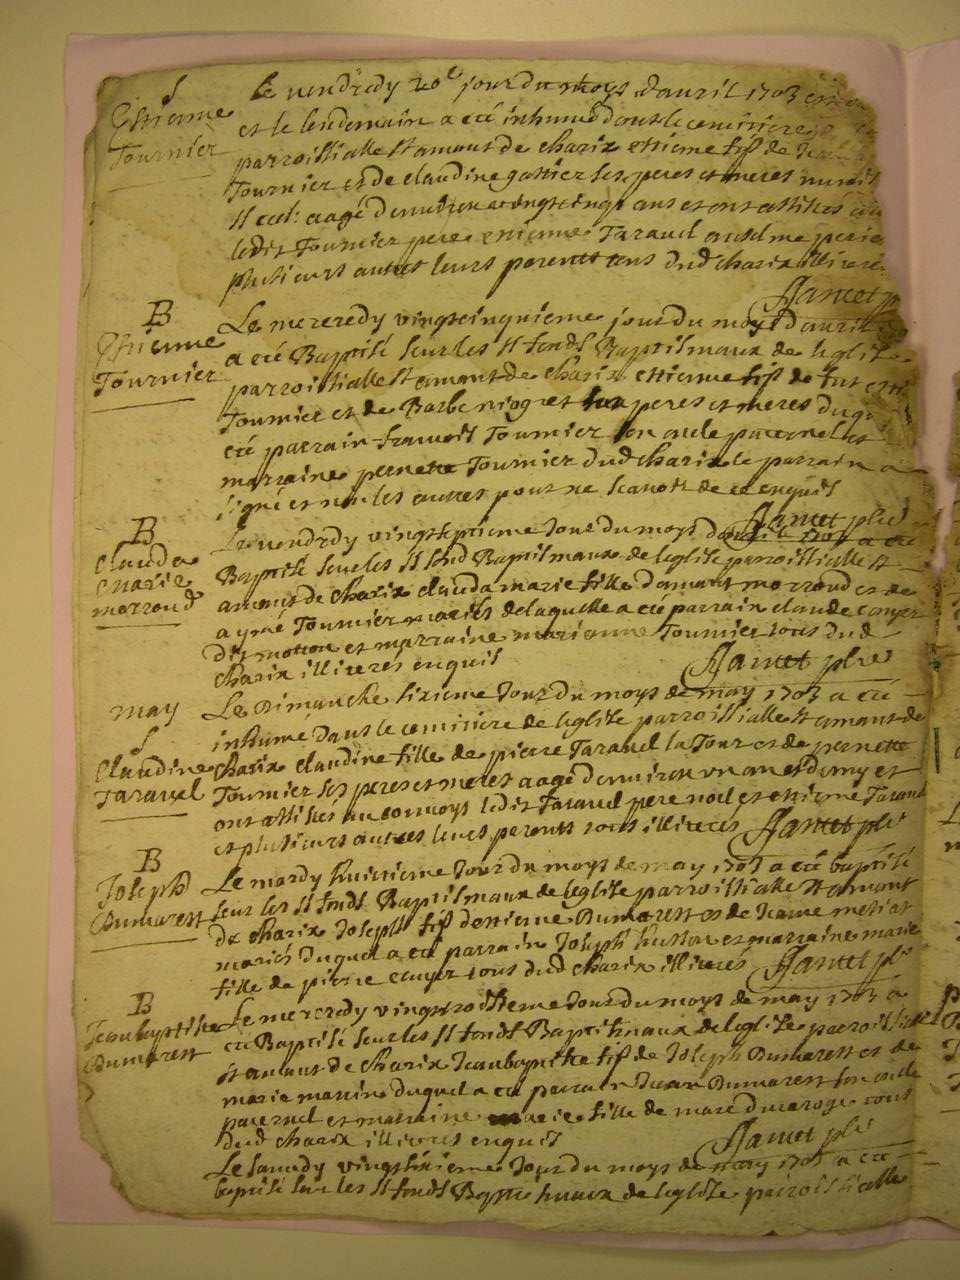 S
Estienne
Tournier
Le vendredy 20e jour du moys d'avril 1703
et le lendemain a été inhumé dans le cemitiere
parroissialle St amant de charix estienne fils de
Tournier et de claudine gassier ses peres et meres
aagé d'environ vingtcinq ans et ont assistés
ledit Tournier pere estienne Taravel
plusieurs autres leurs parents tous dud charix illiteré
Jantet
B
Estienne
Tournier
Le mercredy vingtcinquieme jour du moys d'avril
a été Baptisé sur les St fonds Baptismaux de leglise
parroissialle St amant de charix estienne fils de
Tournier et de Barbe niogret peres et meres duq
été parrain francois Tournier son oncle paternel et
marraine pernette Tournier dud charix le parrain a
signé et non les autres pour ne scavoir de ce enquis
Jantet ptre
B
Clauda
marie
morrond
Le vendredy vingtseptieme Jour du moys davril 1703 a été
Baptisé sur les St fond Baptismaux de leglise parroissialle St
amant de charix clauda marie fille damant morrond et de
aymé Tournier mariés delaquelle a été parrain claude
dit moton et marraine marianne Tournier tous dud
charix illiterés enquis
Jantet ptre
may
S
Claudine
Taravel
Le Dimanche sixieme Jour du moys de may 1703 a été
inhumé dans le cemitiere de leglise parroissialle St amant de
charix claudine fille de pierre Taravel la Tour et de pernette
Tournier ses peres et meres aagé d'environ un an et demy et
ont assistés au convoys ledit Taravel pere noel et estienne Taravel
et plusieurs autres leurs parents tous illiterés Jantet ptre
B
Joseph
Dumarest
Le mardy huictieme Jour du moys de may 1703 a été baptisé
sur les St fonds Baptismaux de leglise parroissialle St amant
de charix Joseph fils destienne Dumarest et de Jeanne
mariés duquel a été parrain Joseph et marraine marie
fille de pierre tous dud charix illiterés Jantet ptre
B
Jeanbaptiste
Dumarest
Le mercredy vingttroisieme Jour du moys de may 1703 a
été Baptisé sur les St fonds Baptismaux de leglise parroissialle
St amant de charix Jeanbaptiste fils de Joseph Dumarest et de
marie duquel a été parrain Jean Dumarest son oncle
paternel et marraine marie fille de marc tous
dud charix illiterés enquis
Jantet ptre
Le samedy vingtsixieme Jour du moys de may 1703 a été
baptisé sur les St fonds Baptismaux de leglise parroissialle